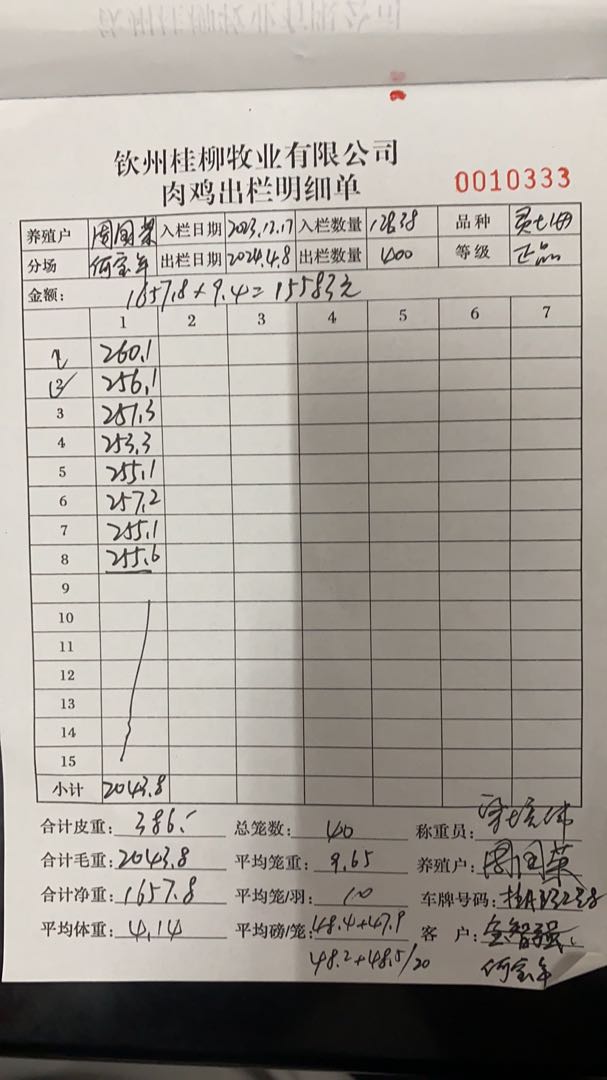 钦州桂柳牧业有限公司
肉鸡出栏明细单
0010333
养殖户 周国英 入栏日期 2023.12.17 入栏数量 12638 品种
分场 何宝年 出栏日期 2024.4.8 出栏数量 400 等级 正品
金额: 1657.8×9.4=15583元
1 2 3 4 5 6 7
1 260.1
2 256.1
3 251.3
4 253.3
5 255.1
6 257.2
7 255.1
8 255.6
9
10
11
12
13
14
15
小计 2043.8
合计皮重: 386. 总笼数: 40 称重员:
合计毛重: 2043.8 平均笼重: 9.65 养殖户: 周国英
合计净重: 1657.8 平均笼/羽: 10 车牌号码:
平均体重: 4.14 平均磅/笼: 48.4+47.9 客 户:
48.2+48.5/20 何宝年